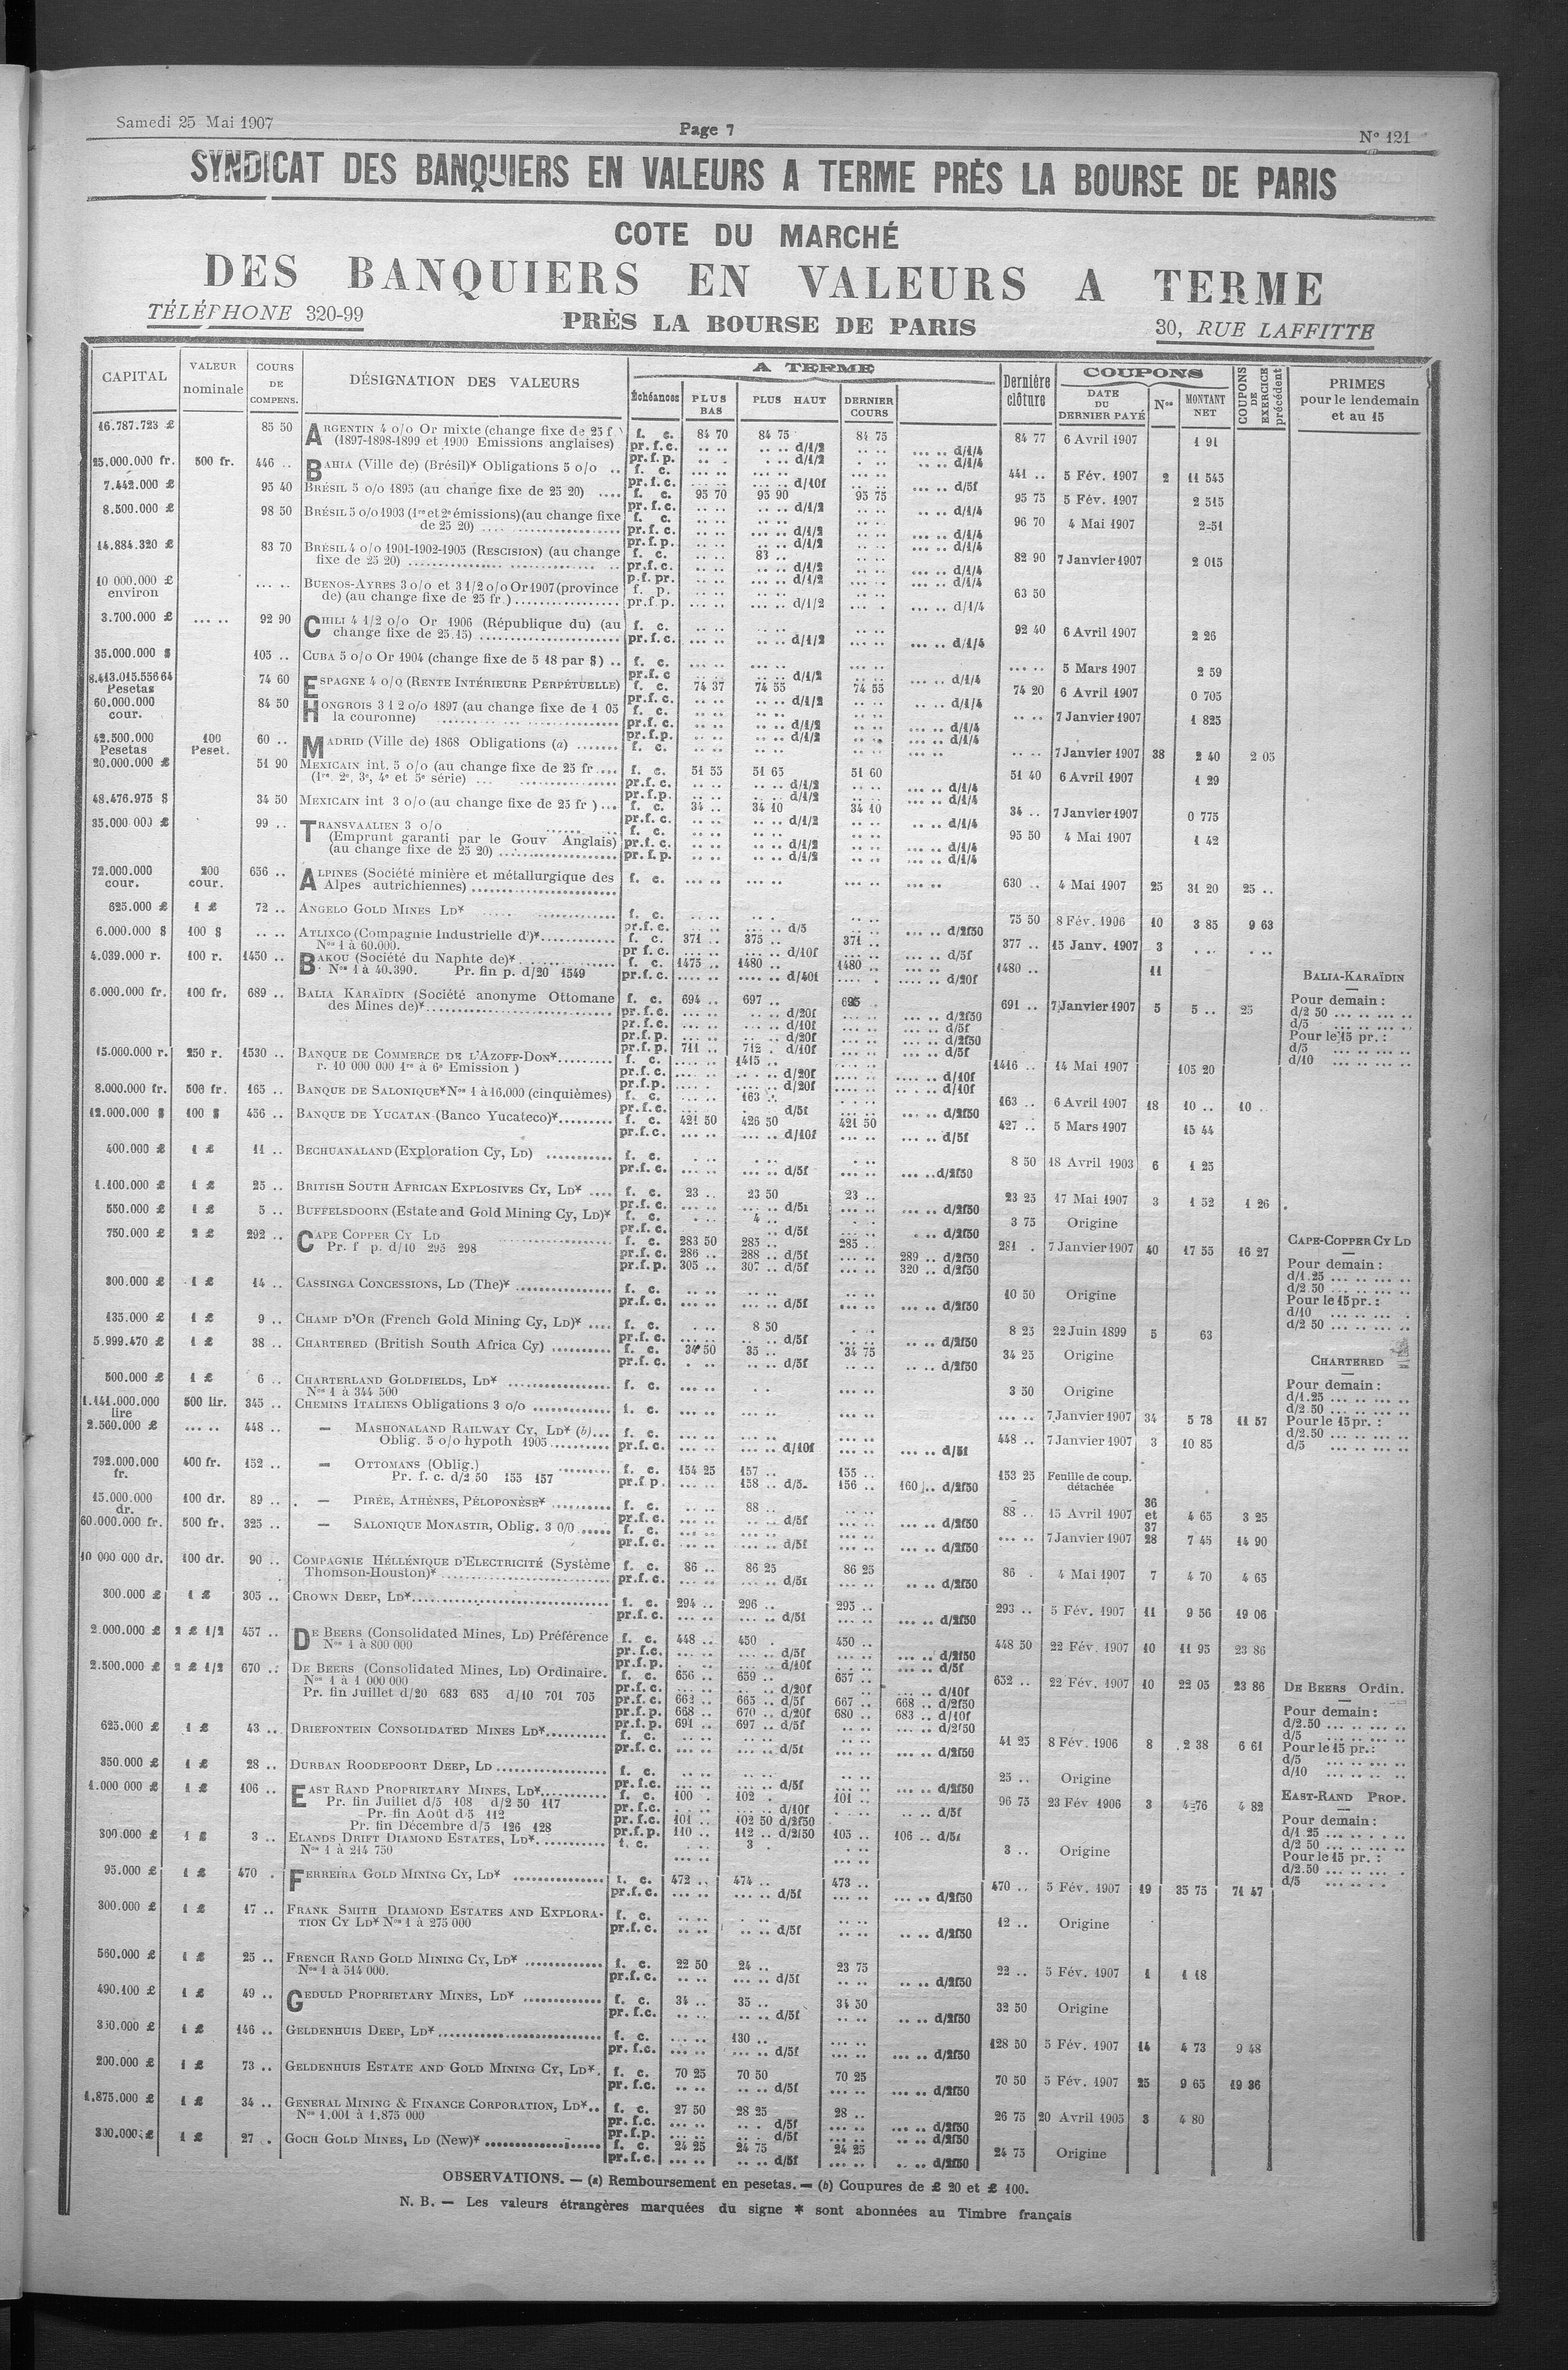 Samedi 25 Mai 1907 Page 7 N° 121
SYNDICAT DES BANQUIERS EN VALEURS A TERME PRÈS LA BOURSE DE PARIS
COTE DU MARCHÉ
DES BANQUIERS EN VALEURS A TERME
TÉLÉPHONE 320-99 PRÈS LA BOURSE DE PARIS 30, RUE LAFFITTE
CAPITAL VALEUR nominale COURS DE COMPENS. DÉSIGNATION DES VALEURS A TERME Échéances PLUS BAS PLUS HAUT DERNIER COURS Dernière clôture COUPONS DATE DU DERNIER PAYÉ Nos MONTANT NET COUPONS DE EXERCICE précédent PRIMES pour le lendemain et au 15
16.787.723 £ 85 50 ARGENTIN 4 o/o Or mixte (change fixe de 25 f.) f. c. 84 70 84 75 84 75 84 77 6 Avril 1907 1 91
(1897-1898-1899 et 1900 Emissions anglaises) pr.f.c. .. .. .. .. d/1/2 .. .. ... .. d/1/4
pr.f.p. .. .. .. d/1/2 ... .. d/1/4
25.000.000 fr. 500 fr. 446 .. BAHIA (Ville de) (Brésil)* Obligations 5 o/o .. f. c. 441 .. 5 Fév. 1907 2 11 545
pr.f.c. d/10f d/5f
7.442.000 £ 95 40 BRÉSIL 5 o/o 1895 (au change fixe de 25 20) .... f. c. 95 70 95 90 95 75 95 75 5 Fév. 1907 2 515
pr.f.c. d/1/2 d/1/4
8.500.000 £ 98 50 BRÉSIL 5 o/o 1903 (1re et 2e émissions) (au change fixe f. c. 96 70 4 Mai 1907 2-51
de 25 20) pr.f.c. d/1/2 d/1/4
pr.f.p. d/1/2 d/1/4
14.884.320 £ 83 70 BRÉSIL 4 o/o 1901-1902-1905 (RESCISION) (au change f. c. 83 .. 82 90 7 Janvier 1907 2 015
fixe de 25 20) pr.f.c. d/1/2 d/1/4
p.f.pr. d/1/2 d/1/4
10 000.000 £ environ ... .. BUENOS-AYRES 3 o/o et 3 1/2 o/o Or 1907 (province f. p. 63 50
de) (au change fixe de 25 fr.) pr.f.p. d/1/2 d/1/4
3.700.000 £ ... .. 92 90 CHILI 4 1/2 o/o Or 1906 (République du) (au f. c. 92 40 6 Avril 1907 2 26
change fixe de 25.15) pr.f.c. d/1/2 d/1/4
35.000.000 $ 105 .. CUBA 5 o/o Or 1904 (change fixe de 5 18 par $) .. f. c. ... .. 5 Mars 1907 2 59
pr.f.c d/1/2 d/1/4
8.413.015.556 64 Pesetas 74 60 ESPAGNE 4 o/o (RENTE INTÉRIEURE PERPÉTUELLE) f. c. 74 37 74 55 74 55 74 20 6 Avril 1907 0 705
pr.f.c. d/1/2 d/1/4
60.000.000 cour. 84 50 HONGROIS 3 1 2 o/o 1897 (au change fixe de 1 05 f. c. .. .. 7 Janvier 1907 1 825
la couronne) pr.f.c. d/1/2 d/1/4
pr.f.p. d/1/2 d/1/4
42.500.000 Pesetas 100 Peset. 60 .. MADRID (Ville de) 1868 Obligations (a) ....... f. c. .. .. 7 Janvier 1907 38 2 40 2 05
20.000.000 £ 51 90 MEXICAIN int. 5 o/o (au change fixe de 25 fr .... f. c. 51 55 51 65 51 60 51 40 6 Avril 1907 1 29
(1re, 2e, 3e, 4e et 5e série) pr.f.c. d/1/2 d/1/4
pr.f.p. d/1/2 d/1/4
48.476.975 $ 34 50 MEXICAIN int 3 o/o (au change fixe de 25 fr ) ... f. c. 34 .. 34 10 34 10 34 .. 7 Janvier 1907 0 775
pr.f.c. d/1/2 d/1/4
35.000 000 £ 99 .. TRANSVAALIEN 3 o/o f. c. 95 50 4 Mai 1907 1 42
(Emprunt garanti par le Gouv Anglais) pr.f.c. d/1/2 d/1/4
(au change fixe de 25 20) pr.f.p. d/1/2 d/1/4
72.000.000 cour. 200 cour. 656 .. ALPINES (Société minière et métallurgique des f. c. 630 .. 4 Mai 1907 25 31 20 25 ..
Alpes autrichiennes)
625.000 £ 1 £ 72 .. ANGELO GOLD MINES LD* f. c. 75 50 8 Fév. 1906 10 3 85 9 63
pr.f.c. d/5 d/2f50
6.000.000 $ 100 $ .. .. ATLIXCO (Compagnie Industrielle d')* f. c. 371 .. 375 .. 371 .. 377 .. 15 Janv. 1907 3
Nos 1 à 60.000. pr f.c. d/10f d/5f
4.039.000 r. 100 r. 1450 .. BAKOU (Société du Naphte de)* f. c. 1475 .. 1480 .. 1480 .. 1480 .. 11
Nos 1 à 40.390. Pr. fin p. d/20 1549 pr.f.c. d/40f d/20f
BALIA-KARAÏDIN
6.000.000 fr. 100 fr. 689 .. BALIA KARAÏDIN (Société anonyme Ottomane f. c. 694 .. 697 .. 695 . 691 .. 7 Janvier 1907 5 5 .. 25 Pour demain :
des Mines de)* pr.f.c. d/20f d/2f50 d/2 50
pr.f.c. d/10f d/5f d/5
pr.f.p. d/20f d/2f50 Pour le 15 pr. :
pr.f.p. 711 .. 712 . d/10f d/5f d/5
15.000.000 r. 250 r. 1530 .. BANQUE DE COMMERCE DE L'AZOFF-DON* f. c. 1415 .. 1416 .. 14 Mai 1907 105 20 d/10
r. 10 000 000 1re à 6e Emission ) pr.f.c. d/20f d/10f
pr.f.p. d/20f d/10f
8.000.000 fr. 500 fr. 165 .. BANQUE DE SALONIQUE* Nos 1 à 16.000 (cinquièmes) f. c. 163 .. 163 .. 6 Avril 1907 18 10 .. 10 ..
pr.f.c. d/5f d/2f50
12.000.000 $ 100 $ 456 .. BANQUE DE YUCATAN (Banco Yucateco)* f. c. 421 50 426 50 421 50 427 .. 5 Mars 1907 15 44
pr.f.c. d/10f d/5f
400.000 £ 1 £ 11 .. BECHUANALAND (Exploration Cy, LD) f. c. 8 50 18 Avril 1903 6 1 25
pr.f.c. d/5f d/2f50
1.100.000 £ 1 £ 25 .. BRITISH SOUTH AFRICAN EXPLOSIVES CY, LD* .... f. c. 23 .. 23 50 23 .. 23 25 17 Mai 1907 3 1 52 1 26
pr.f.c. d/5f d/2f50
550.000 £ 1 £ 5 .. BUFFELSDOORN (Estate and Gold Mining Cy, LD)* f. c. 4 .. 3 75 Origine
pr.f.c. d/5f d/2f50
750.000 £ 2 £ 292 .. CAPE COPPER CY LD f. c. 283 50 285 .. 285 .. 281 . 7 Janvier 1907 40 17 55 16 27 CAPE-COPPER CY LD
Pr. f p. d/10 295 298 pr.f.c. 286 .. 288 .. d/5f 289 .. d/2f50 Pour demain :
pr.f.p. 305 .. 307 .. d/5f 320 .. d/2f50 d/1.25
300.000 £ 1 £ 14 .. CASSINGA CONCESSIONS, LD (The)* f. c. 10 50 Origine d/2 50
pr.f.c. d/5f d/2f50 Pour le 15 pr. :
d/10
135.000 £ 1 £ 9 .. CHAMP D'OR (French Gold Mining Cy, LD)* .... f. c. 8 50 8 25 22 Juin 1899 5 63 d/2 50
pr.f.c. d/5f d/2f50
5.999.470 £ 1 £ 38 .. CHARTERED (British South Africa Cy) f. c. 34 50 35 .. 34 75 34 25 Origine CHARTERED
pr.f.c. d/5f d/2f50
500.000 £ 1 £ 6 .. CHARTERLAND GOLDFIELDS, LD* f. c. 3 50 Origine Pour demain :
Nos 1 à 344 500 d/1.25
1.141.000.000 lire 500 lir. 345 .. CHEMINS ITALIENS Obligations 3 o/o f. c. ... .. 7 Janvier 1907 34 5 78 11 57 d/2.50
2.560.000 £ ... .. 448 .. — MASHONALAND RAILWAY CY, LD* (b)... f. c. 448 .. 7 Janvier 1907 3 10 85 Pour le 15 pr. :
Oblig. 5 o/o hypoth 1905 pr.f.c. d/10f d/5f d/2.50
d/5
792.000.000 fr. 400 fr. 152 .. — OTTOMANS (Oblig.) f. c. 154 25 157 .. 155 .. 153 25 Feuille de coup. détachée
Pr. f. c. d/2 50 155 157 pr.f.p. 158 .. d/5. 156 .. 160 .. d/2f50
15.000.000 dr. 100 dr. 89 .. — PIRÉE, ATHÈNES, PÉLOPONÈSE* f. c. 88 .. 88 .. 15 Avril 1907 36 et 37 4 65 3 25
pr.f.c. d/5f d/2f50
60.000.000 fr. 500 fr. 325 .. — SALONIQUE MONASTIR, Oblig. 3 0/0 ..... f. c. ... .. 7 Janvier 1907 28 7 45 14 90
pr.f.c. d/5f d/2f50
10 000 000 dr. 100 dr. 90 .. COMPAGNIE HÉLLÉNIQUE D'ELECTRICITÉ (Système f. c. 86 .. 86 25 86 25 86 . 4 Mai 1907 7 4 70 4 65
Thomson-Houston)* pr.f.c. d/5f d/2f50
300.000 £ 1 £ 305 .. CROWN DEEP, LD* f. c. 294 .. 296 .. 295 .. 293 .. 5 Fév. 1907 11 9 56 19 06
pr.f.c. d/5f d/2f50
2.000.000 £ 2 £ 1/2 457 .. DE BEERS (Consolidated Mines, LD) Préférence f. c. 448 .. 450 . 450 .. 448 50 22 Fév. 1907 10 11 95 23 86
Nos 1 à 800 000 pr. f.c. d/5f d/2f50
pr.f.p. d/10f d/5f
2.500.000 £ 2 £ 1/2 670 .. DE BEERS (Consolidated Mines, LD) Ordinaire. f. c. 656 .. 659 .. 657 .. 652 .. 22 Fév. 1907 10 22 05 23 86 DE BEERS Ordin.
Nos 1 à 1 000 000 pr.f.c. d/20f d/10f
Pr. fin Juillet d/20 683 685 d/10 701 705 pr.f.c. 662 .. 665 .. d/5f 667 .. 668 .. d/2f50 Pour demain :
pr.f.p. 668 .. 670 .. d/20f 680 .. 683 .. d/10f d/2.50
pr.f.p. 691 .. 697 .. d/5f d/2f50 d/5
625.000 £ 1 £ 43 .. DRIEFONTEIN CONSOLIDATED MINES LD* f. c. 41 25 8 Fév. 1906 8 2 38 6 61 Pour le 15 pr. :
pr.f.c. d/5f d/2f50 d/5
350.000 £ 1 £ 28 .. DURBAN ROODEPOORT DEEP, LD f. c. 25 .. Origine d/10
pr.f.c. d/5f d/2f50
1.000 000 £ 1 £ 106 .. EAST RAND PROPRIETARY MINES, LD* f. c. 100 . 102 . 101 .. 96 75 23 Fév 1906 3 4-76 4 82 EAST-RAND PROP.
Pr. fin Juillet d/5 108 d/2 50 117 pr.f.c. d/10f d/5f
Pr. fin Août d/5 112 pr.f.c. 101 .. 102 50 d/2f50 Pour demain :
Pr. fin Décembre d/5 126 128 pr.f.p. 110 .. 112 .. d/2f50 105 .. 106 .. d/5f d/1 25
300.000 £ 1 £ 3 .. ELANDS DRIFT DIAMOND ESTATES, LD* f. c. 3 . 3 .. Origine d/2 50
Nos 1 à 214 750 Pour le 15 pr. :
95.000 £ 1 £ 470 . FERREIRA GOLD MINING CY, LD* f. c. 472 .. 474 .. 473 .. 470 .. 5 Fév. 1907 19 35 75 71 47 d/2.50
pr.f.c. d/5f d/2f50 d/5
300.000 £ 1 £ 17 .. FRANK SMITH DIAMOND ESTATES AND EXPLORA- f. c. 12 .. Origine
TION CY LD* Nos 1 à 275 000 pr.f.c. d/5f d/2f50
560.000 £ 1 £ 25 .. FRENCH RAND GOLD MINING CY, LD* f. c. 22 50 24 .. 23 75 22 .. 5 Fév. 1907 1 1 18
Nos 1 à 514 000. pr.f.c. d/5f d/2f50
490.100 £ 1 £ 49 .. GEDULD PROPRIETARY MINES, LD* f. c. 34 .. 35 .. 34 50 32 50 Origine
pr. f.c. d/5f d/2f50
350.000 £ 1 £ 146 .. GELDENHUIS DEEP, LD* f. c. 130 .. 128 50 5 Fév. 1907 14 4 73 9 48
pr. f.c. d/5f d/2f50
200.000 £ 1 £ 73 .. GELDENHUIS ESTATE AND GOLD MINING CY, LD*. f. c. 70 25 70 50 70 25 70 50 5 Fév. 1907 25 9 65 19 36
pr. f.c. d/5f d/2f50
1.875.000 £ 1 £ 34 .. GENERAL MINING & FINANCE CORPORATION, LD*.. f. c. 27 50 28 25 28 .. 26 75 20 Avril 1905 3 4 80
Nos 1.001 à 1.875 000 pr.f.c. d/5f d/2f50
pr.f.p. d/5f d/2f50
300.000 £ 1 £ 27 . GOCH GOLD MINES, LD (New)* f. c. 24 25 24 75 24 25 24 75 Origine
pr.f.c. d/5f d/2f50
OBSERVATIONS. — (a) Remboursement en pesetas. — (b) Coupures de £ 20 et £ 100.
N. B. — Les valeurs étrangères marquées du signe * sont abonnées au Timbre français